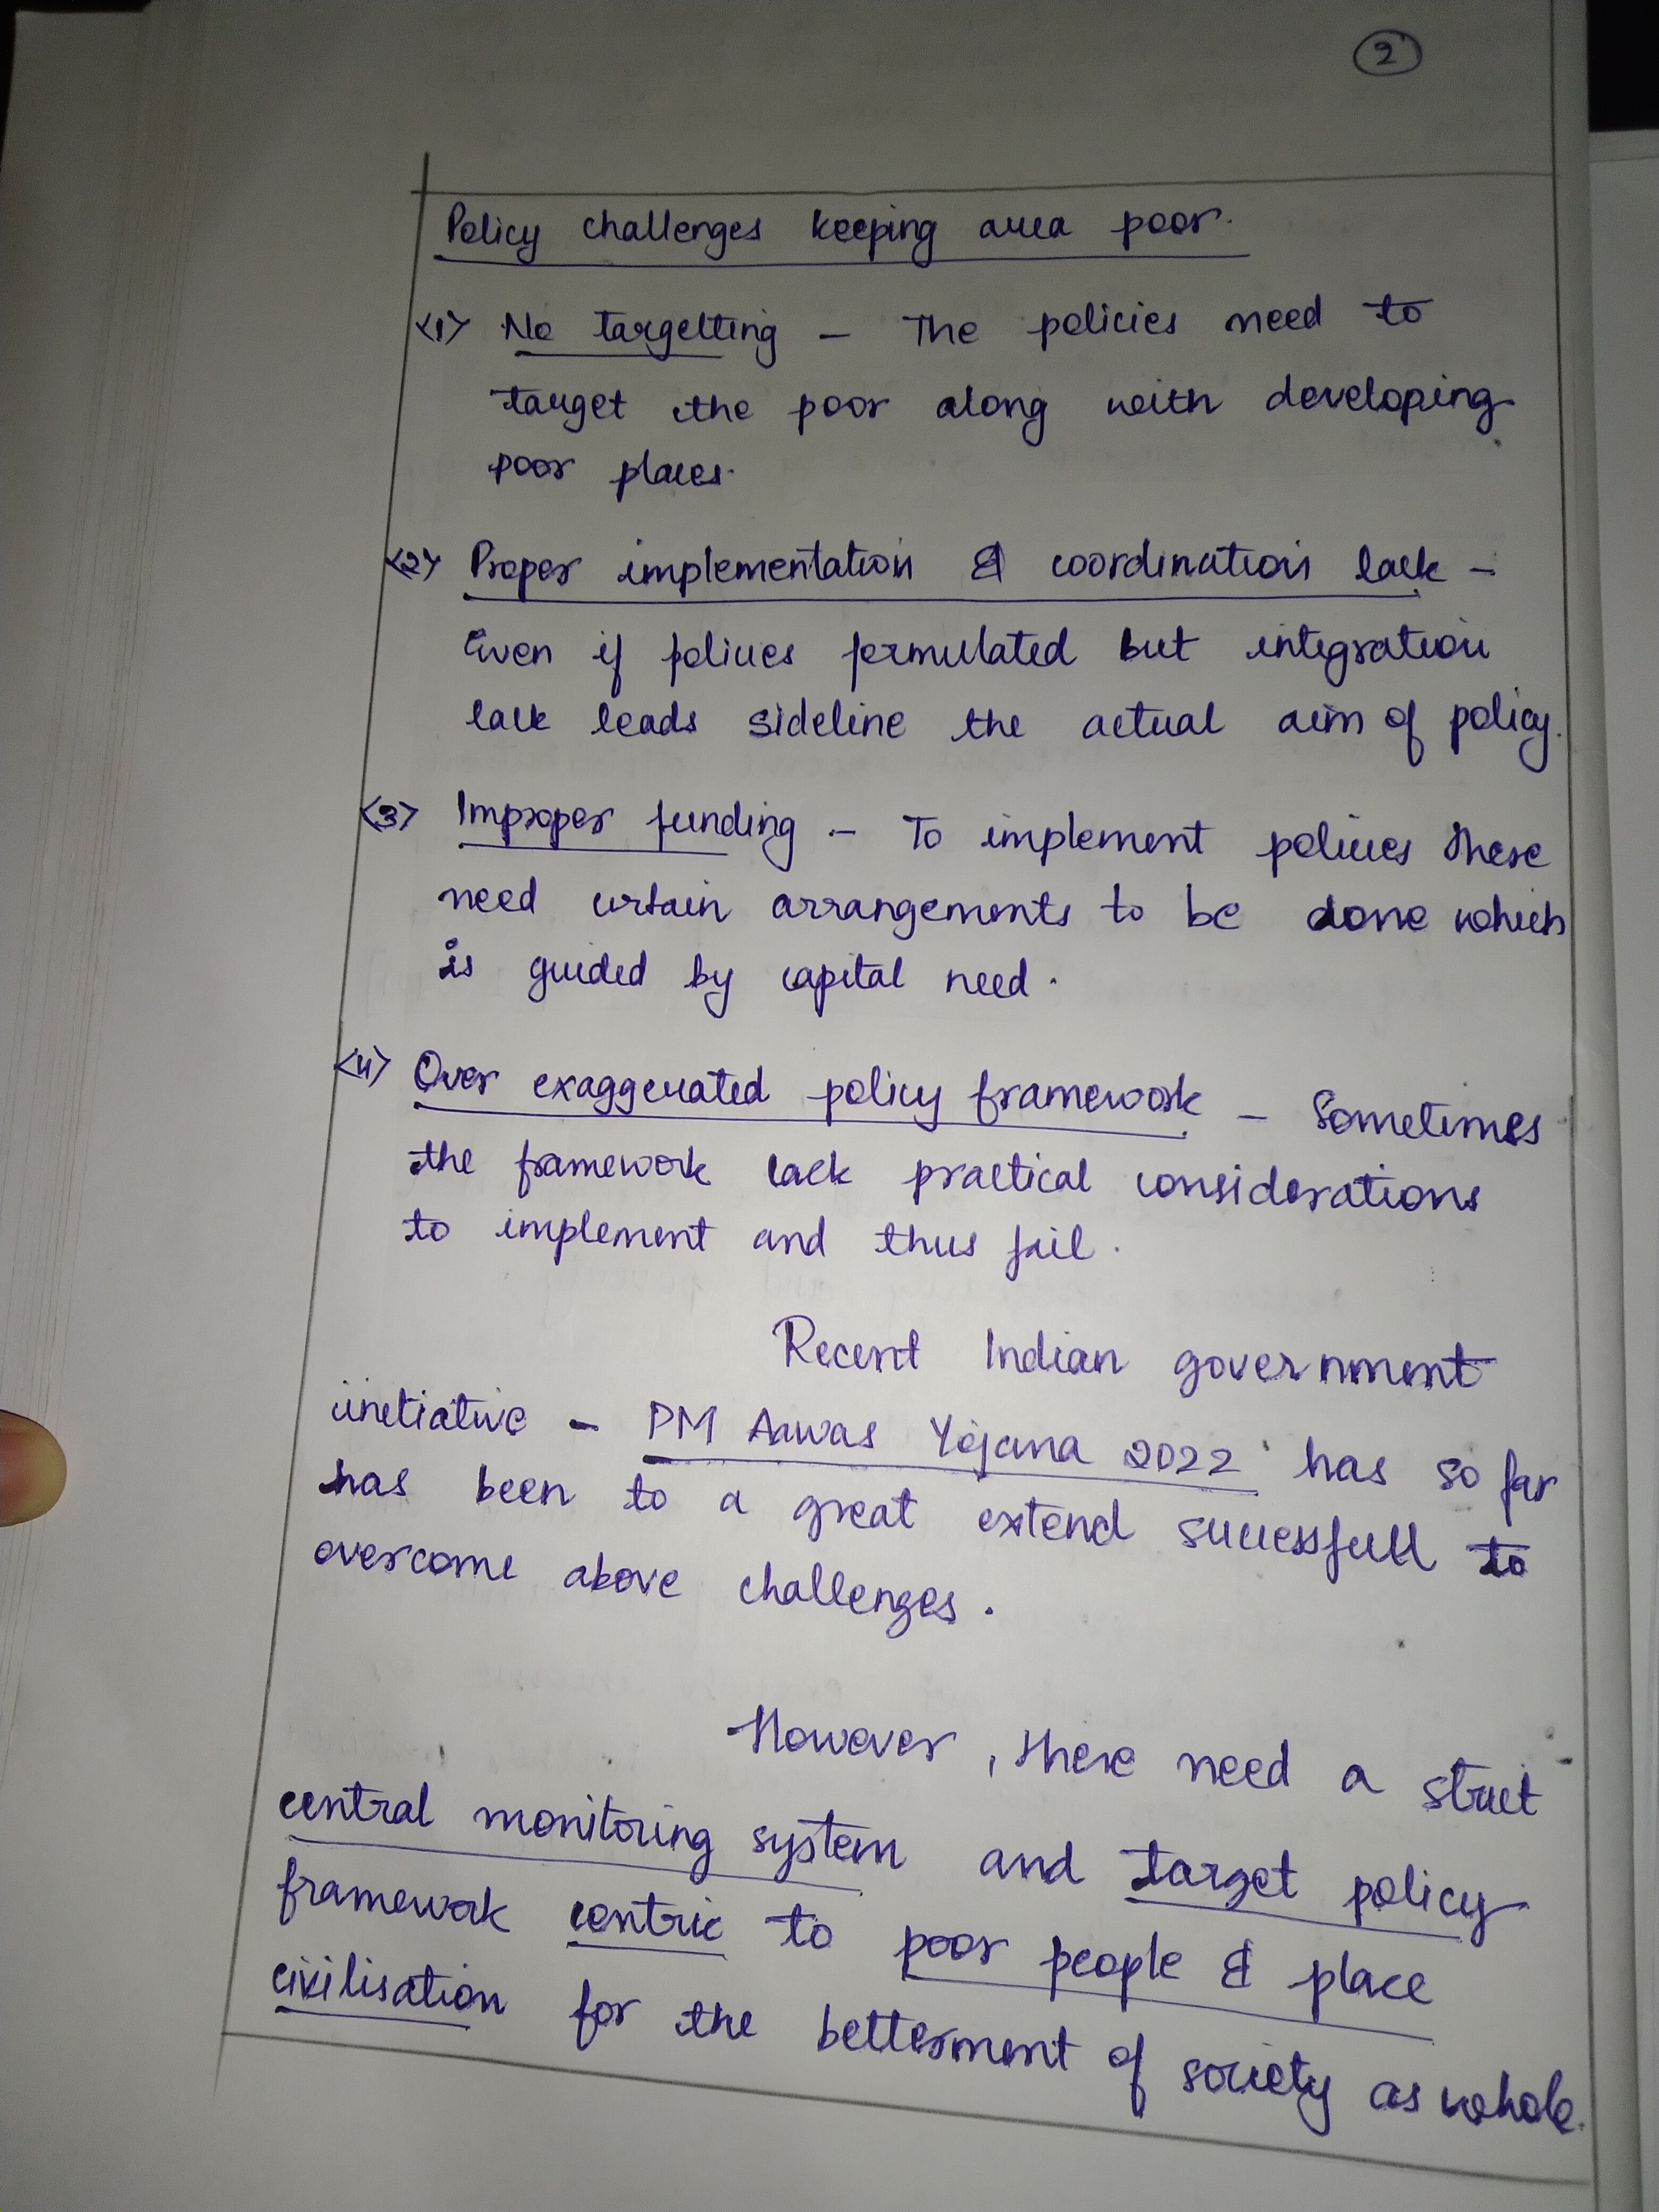 2
Policy challenges keeping area poor.
<1> No targetting - The policies need to
target the poor along with developing
poor places.
<2> Proper implementation & coordination lack -
Even if policies formulated but integration
lack leads sideline the actual aim of policy.
<3> Improper funding - To implement policies there
need certain arrangements to be done which
is guided by capital need.
<4> Over exaggerated policy framework - Sometimes
the framework lack practical considerations
to implement and thus fail.
Recent Indian government
inetiative - PM Aawas Yojana 2022 has so far
has been to a great extend successfull to
overcome above challenges.
However, there need a strict
central monitoring system and target policy
framework centric to poor people & place
civilisation for the betterment of society as whole.